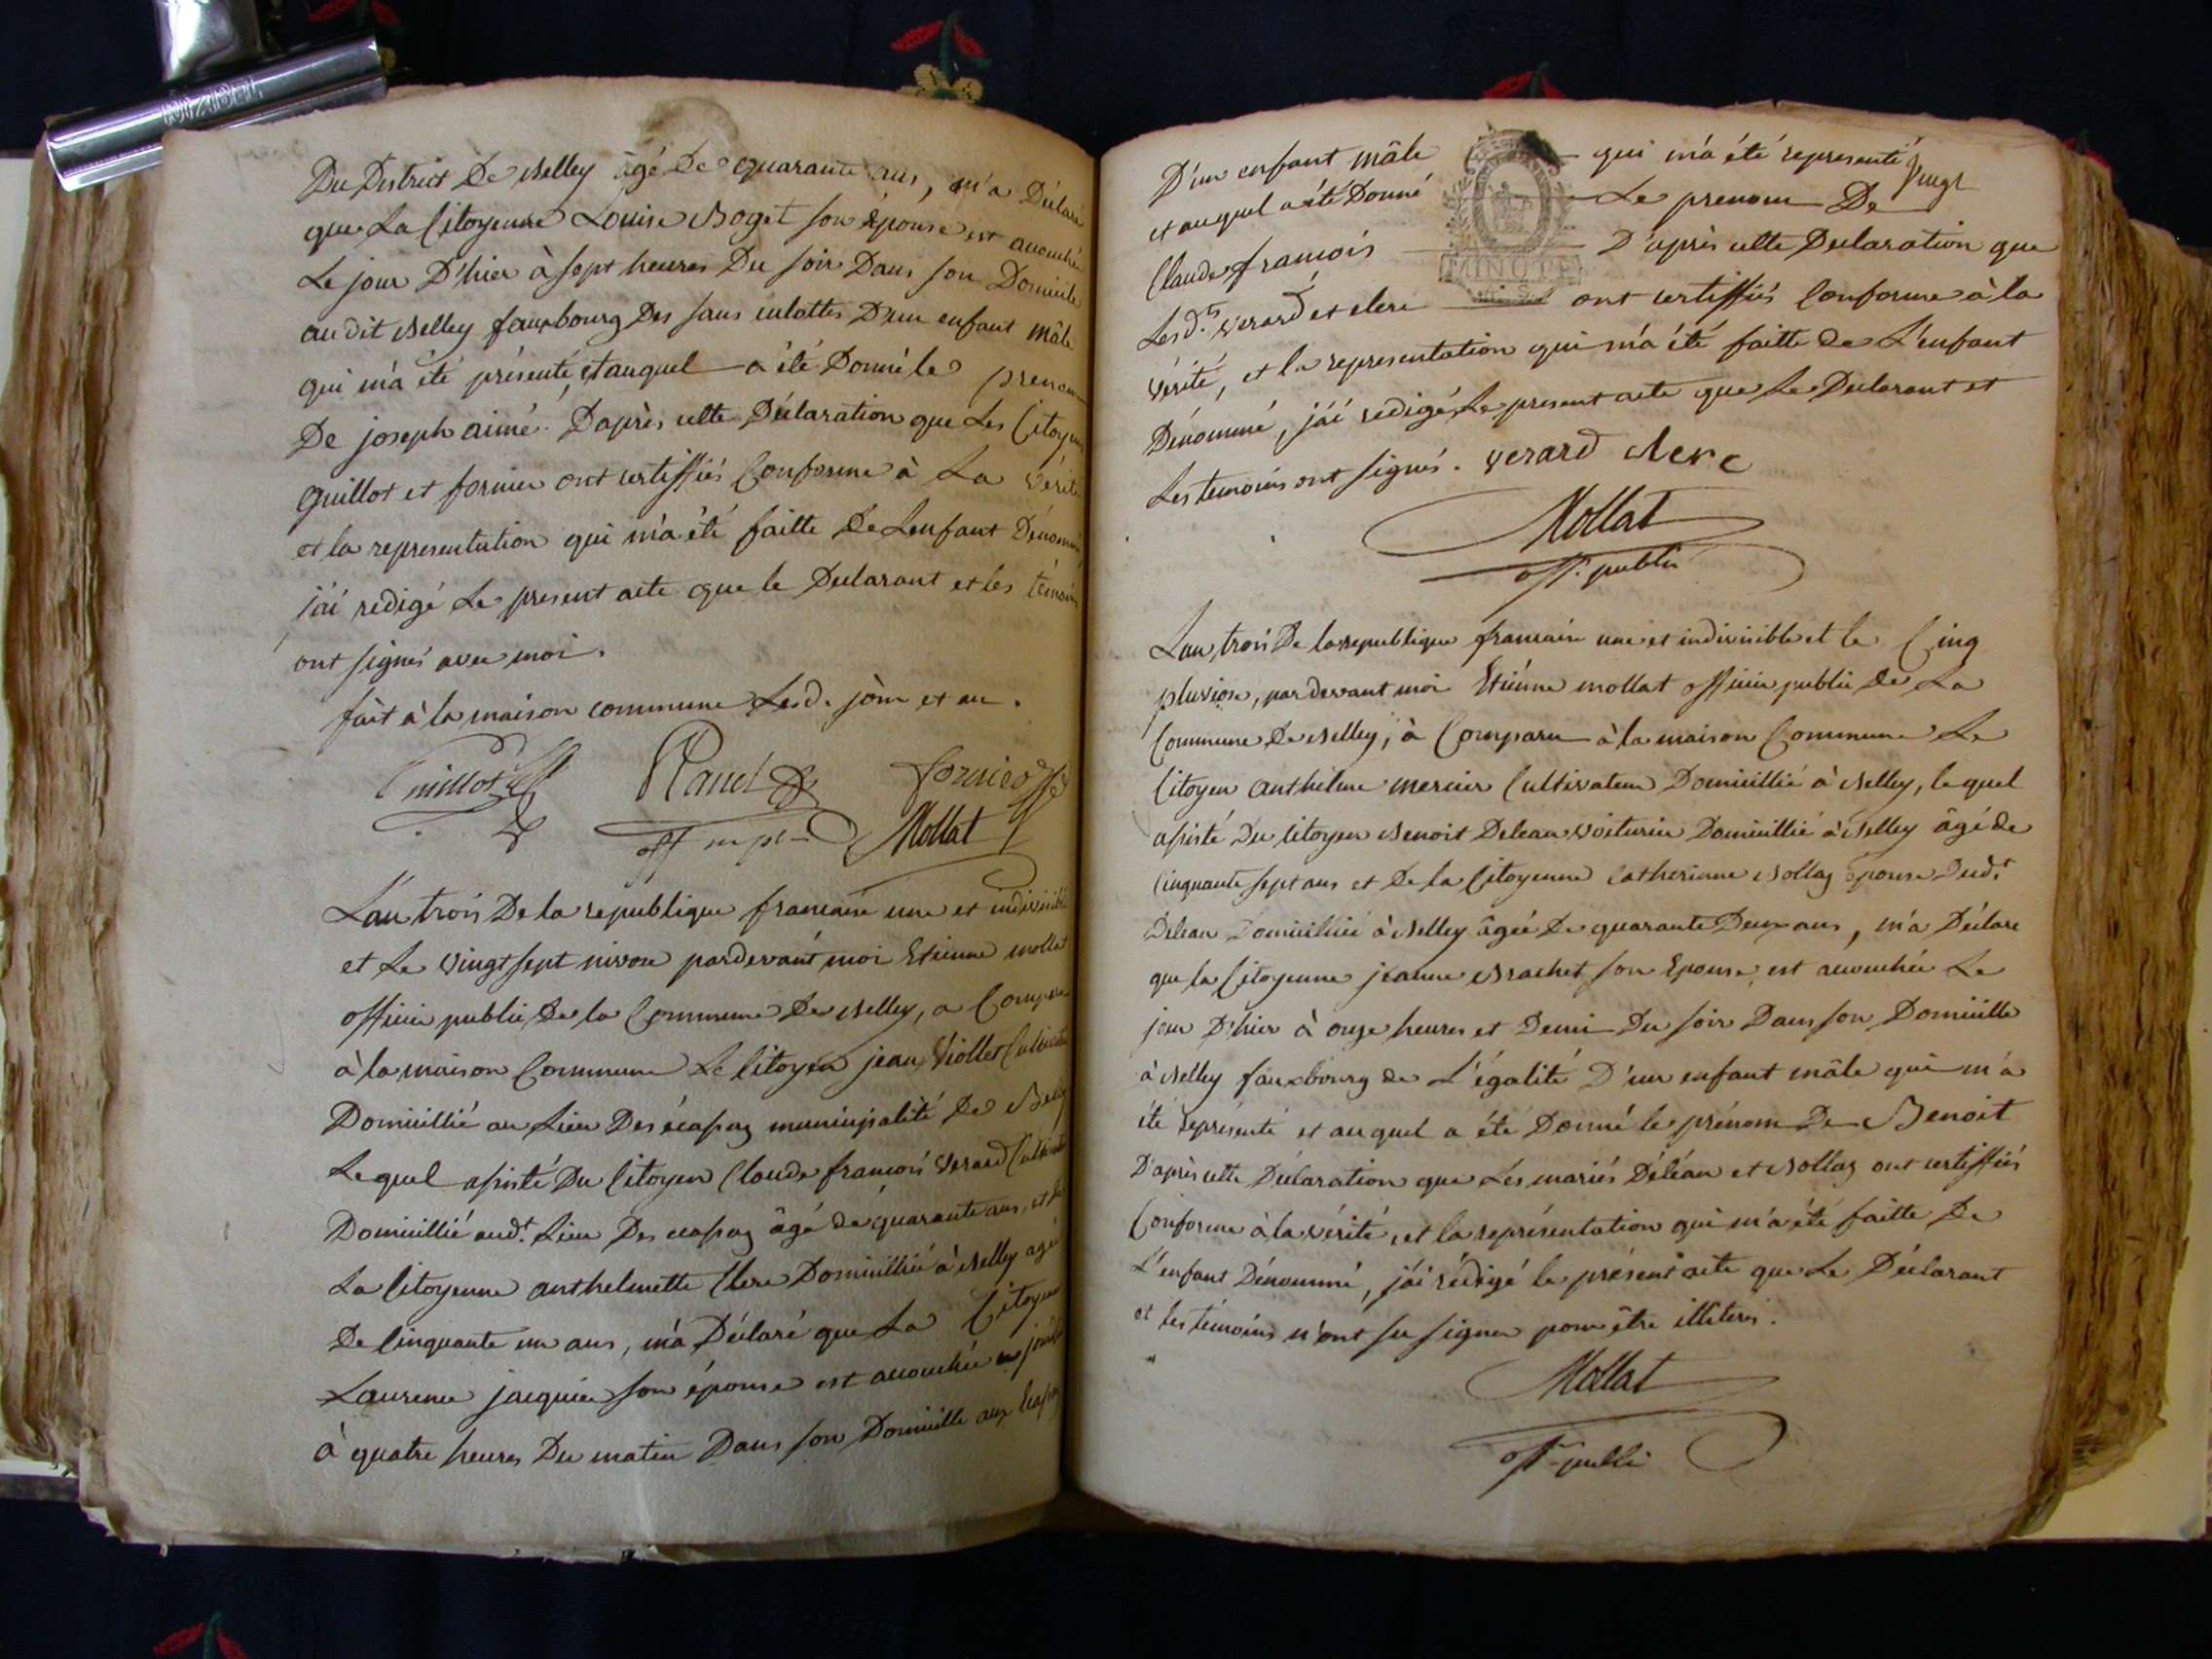 Du District De Belley âgé De quarante ans, m'a Déclaré
que La Citoyenne Louise Boget son épouse est accouchée
Le jour D'hier à sept heures Du soir Dans son Domicile
audit Belley fauxbourg Des sans culottes D'un enfant mâle
qui m'a été présenté, et auquel a été Donné le prenom
De joseph aimé. D'après cette Déclaration que Les Citoyens
Guillot et fornier ont certiffiés Conforme à La vérité
et la representation qui m'a été faitte De L'enfant Dénommé,
j'ai redigé Le present acte que le Declarant et les témoins
ont signés avec moi.
fait à la maison commune Lesd. jour et an.
Guillot
fornier
Mollat
L'an trois De la republique francaise une et indivisible
et Le vingt sept nivose pardevant moi Etienne mollat
officier public De la Commune De Belley, a Comparu
à la maison Commune Le Citoyen jean Viollet Cultivateur
Domicillié au Lieu Des écassaz municipalité De Belley
Lequel assisté Du Citoyen Claude francois Verard Cultivateur
Domicillié aud.t Lieu Des ecassaz âgé de quarante ans, et de
La Citoyenne anthelmette Clerc Domicilliée à Belley agée
De Cinquante un ans, m'a Déclaré que La Citoyenne
Laurence jacquier son épouse est accouchée
à quatre heures Du matin Dans son Domicille aux Ecassaz
D'un enfant mâle qui m'a été representé
et auquel a été Donné Le prenom De
Claude francois D'après cette Declaration que
MINUTE
Lesd.ts Verard et clerc ont certiffiés Conforme à la
vérité, et la representation qui m'a été faitte de L'enfant
Dénommé, j'ai redigé Le present acte que Le Declarant et
Les temoins ont signés. verard Clerc
Mollat
off. public
L'an trois De la republique francaise une et indivisible et le Cinq
pluviose, pardevant moi Etienne mollat officier public de La
Commune De Belley, à Comparu à la maison Commune Le
Citoyen anthelme mercier Cultivateur Domicillié à Belley, lequel
assisté Du Citoyen Benoit Delean voiturier Domicillié à Belley âgé de
Cinquante sept ans et De la Citoyenne Catherinne Bollaz épouse Dud.t
Delean Domicilliée à Belley âgée De quarante Deux ans, m'a Déclaré
que la Citoyenne jeanne Brachet son Epouse, est accouchée Le
jour D'hier à onze heures et Demi Du soir Dans son Domicille
à Belley fauxbourg de L'égalité D'un enfant mâle qui m'a
été représenté et auquel a été Donné le prénom De Benoit
D'après cette Déclaration que Les mariés Déléan et Bollaz ont certiffiés
Conforme à la vérité, et la représentation qui m'a été faitte De
L'enfant Dénommé, j'ai rédigé le présent acte que Le Déclarant
et les témoins n'ont su signer pour être illiterés.
Mollat
off. public